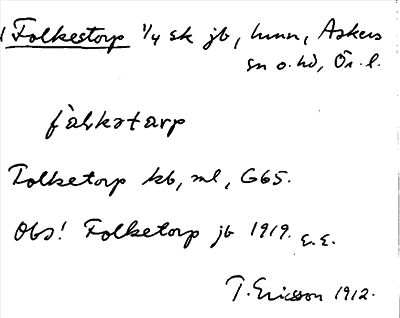 Folkestorp 1/4 sk jb, hmn, Askers
sn o. hd, Ör. l.
fàlkstarp
Folketorp kb, ml, G65.
Obs! Folketorp jb 1919. E.E.
T. Ericsson 1912.